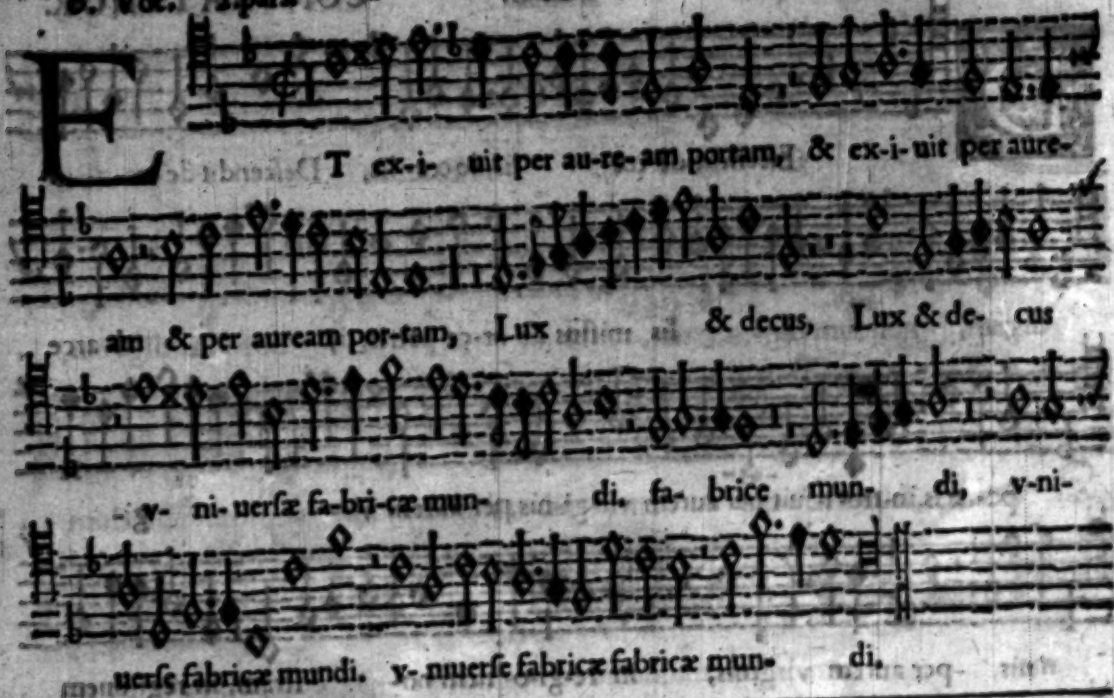 ET ex-i- uit per au-re-am portam, & ex-i-uit per aure-
am & per auream por-tam, Lux & decus, Lux & de- cus
v- ni-uerſæ fa-bri-cæ mun- di. fa- brice mun- di, v-ni-
uerſe fabricæ mundi. v- niuerſe fabricæ fabricæ mun- di.